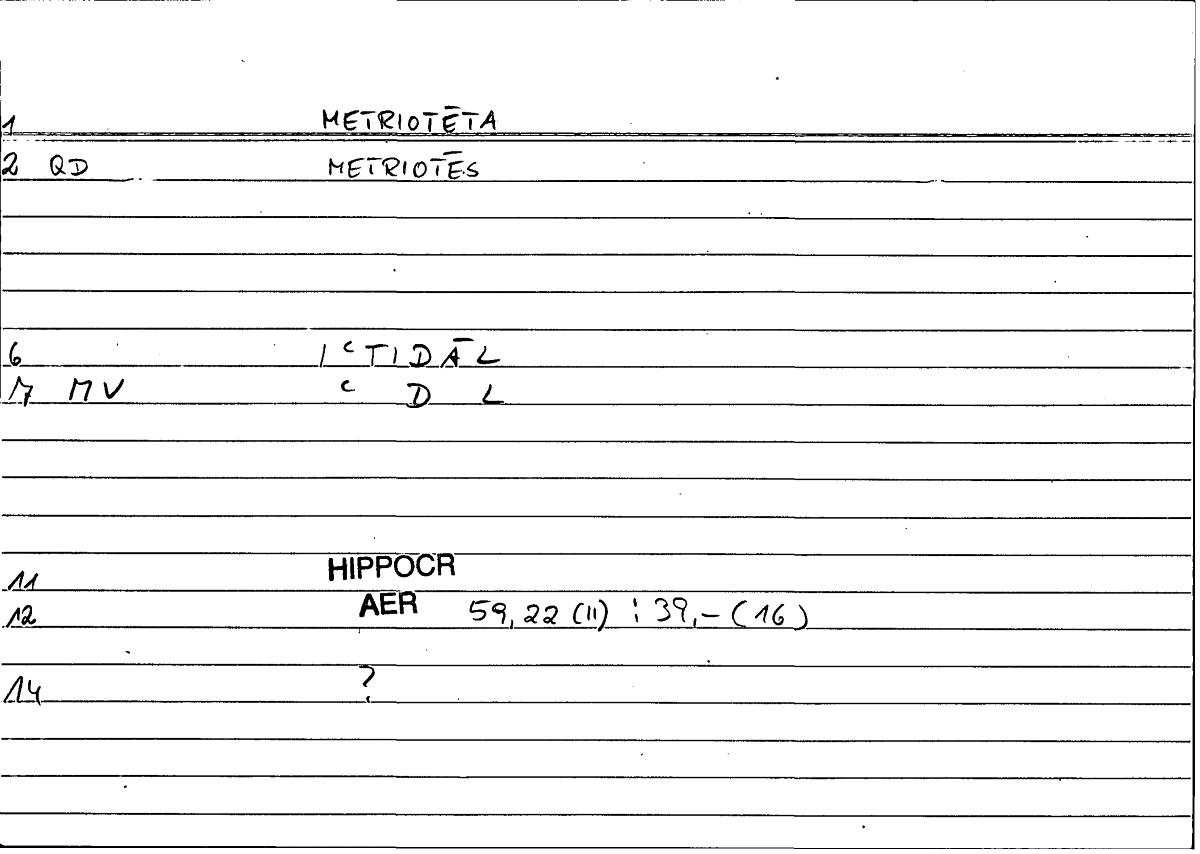 1 METRIOTĒTA
2 QD METRIOTĒS
6 IᶜTIDĀL
7 MV ᶜ D L
11 HIPPOCR
12 AER 59,22 (11) ; 39,– (16)
14 ?